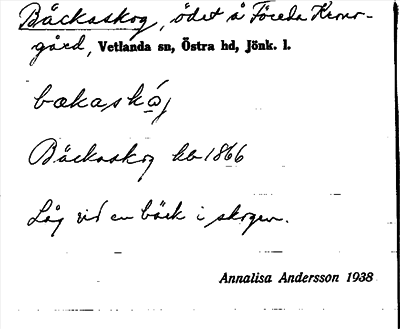 Bäckaskog, ödet å Föreda Krono-
gård, Vetlanda sn, Östra hd, Jönk. l.
bækaskóg
Bäckaskog hb 1866
Låg vid en bäck i skogen.
Annalisa Andersson 1938